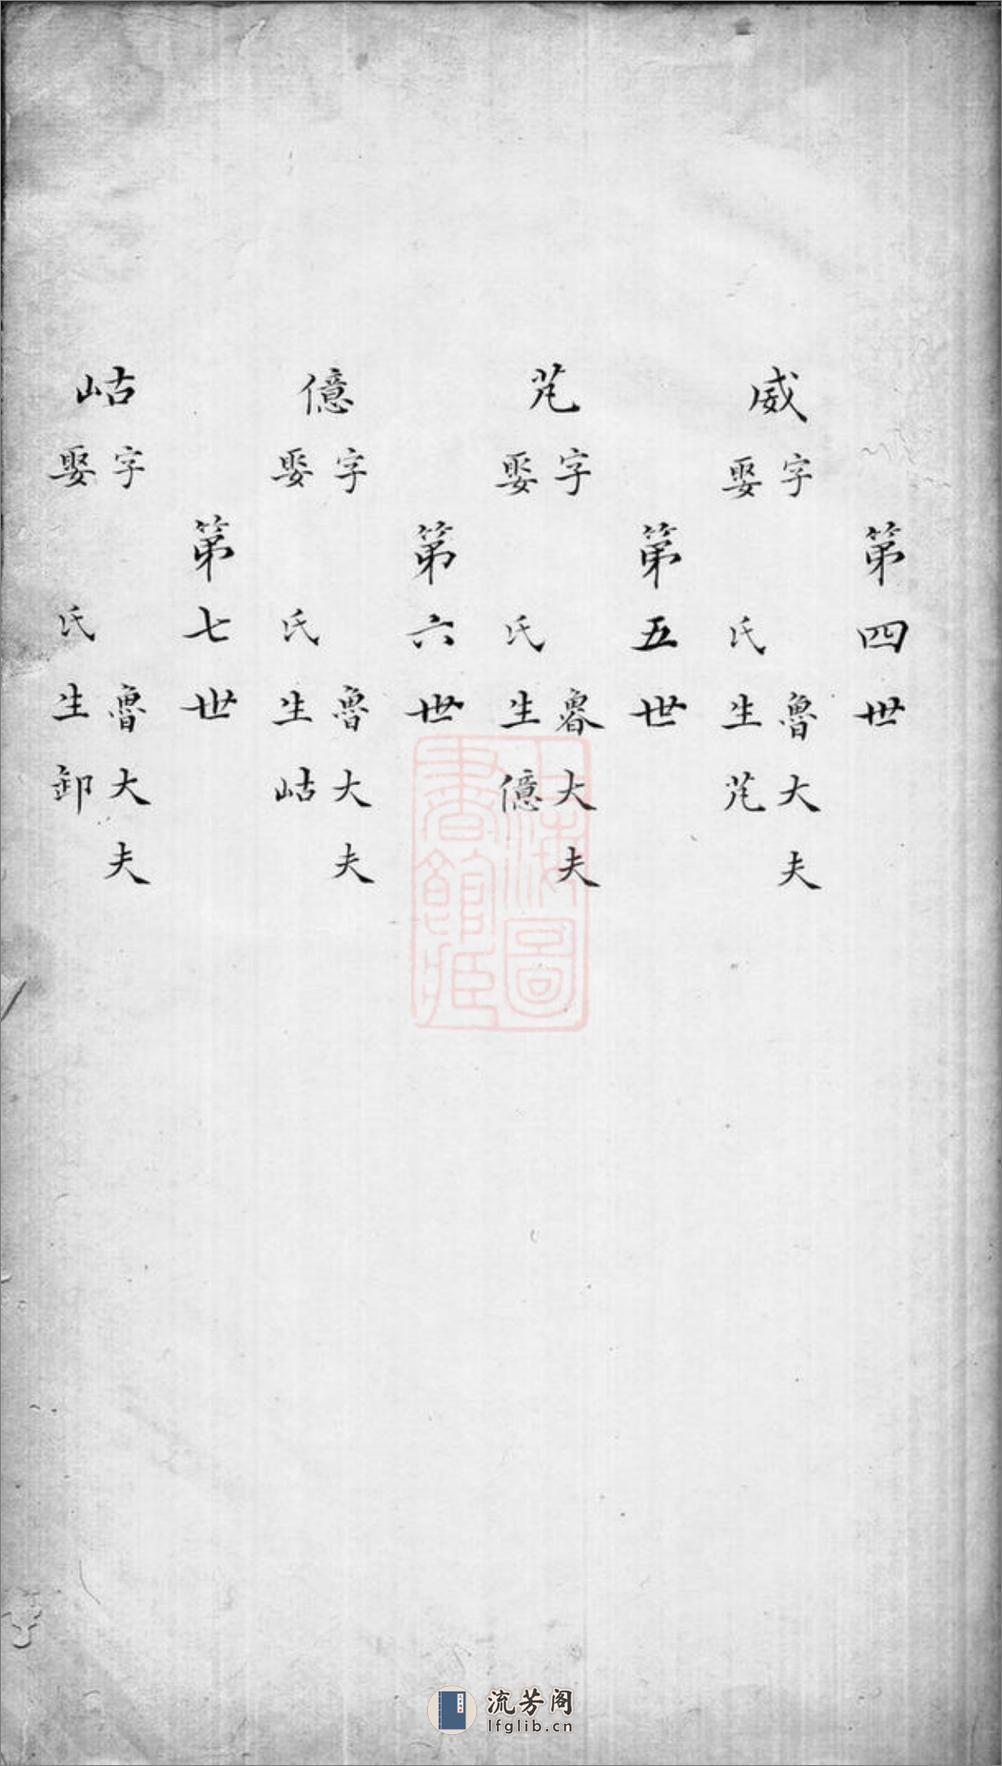 第四世
威 字 魯大夫
娶 氏生芃
第五世
芃 字 魯大夫
娶 氏生億
第六世
億 字 魯大夫
娶 氏生岵
第七世
岵 字 魯大夫
娶 氏生卸
上海圖
書館藏
流芳阁
lfglib.cn